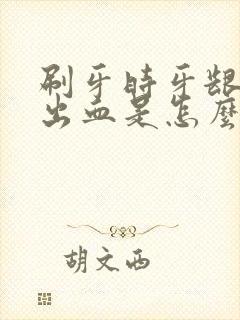 刷牙时牙龈
出血是怎麽
胡文西